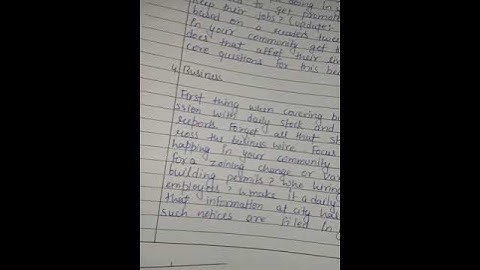 doing in
to get promote
keep their jobs? (updates
based on a readers twee
In your community get t
does that affet their
core questions for this bea
4. Business
First thing when covering bu
ssion with daily stock and
reports. Forget all that st
ross the business wire. Focus
happing In your community
for a zoining change or va
building permits? who hiring
employees? make it a daily
that information at city hal
such notices are filed In